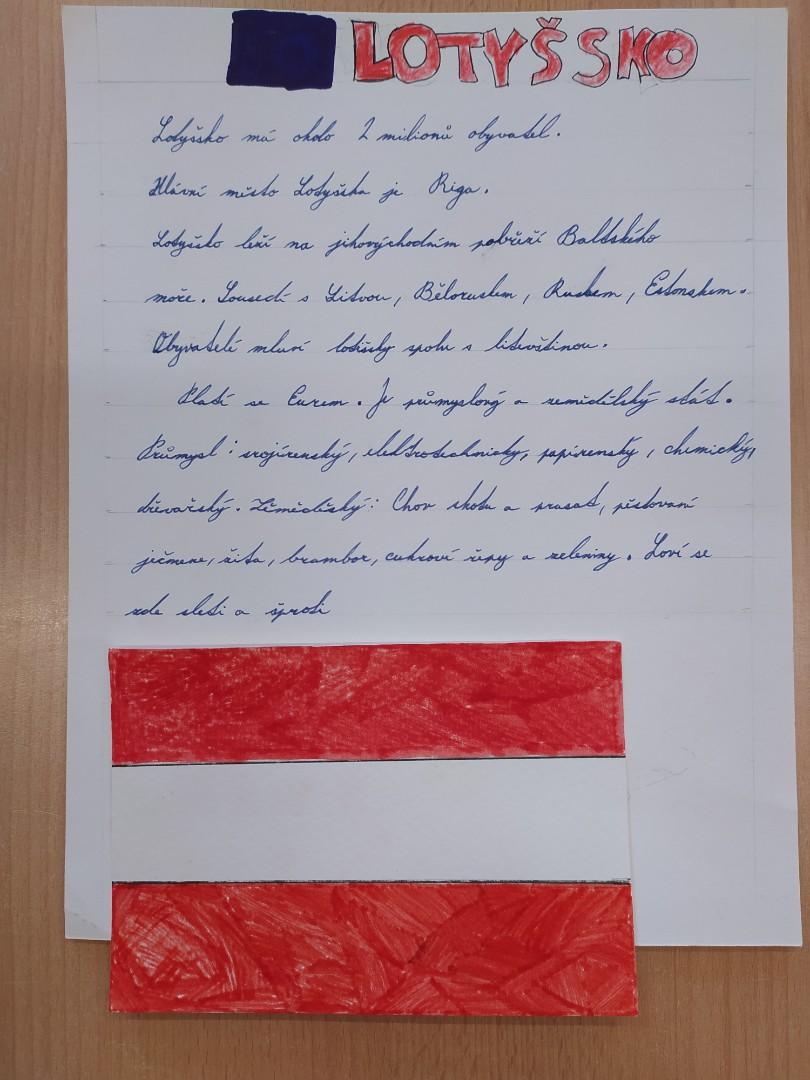 LOTYŠSKO
Lotyšsko má okolo 2 milionů obyvatel.
Hlavní město Lotyšska je Riga.
Lotyšsko leží na jihovýchodním pobřeží Baltského
moře. Sousedí s Litvou, Běloruskem, Ruskem, Estonskem.
Obyvatelé mluví lotišsky spolu s litevštinou.
Platí se Eurem. Je průmyslový a zemědělský stát.
Průmysl: srojírenský, elektrotechnicky, papírensky, chemický,
dřevařský. Zěmědělský: Chov skotu a prasat, pěstovaní
ječmene, žita, brambor, cukroví řepy a zeleniny. Loví se
zde sleti a šproti